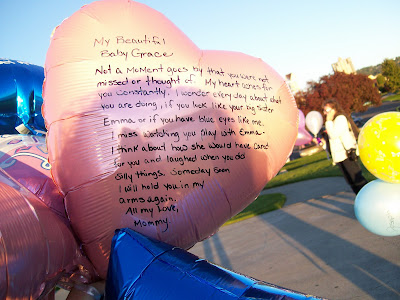 My Beautiful
Baby Grace
Not a moment goes by that you were not
missed or thought of. My heart aches for
you constantly. I wonder every day about what
you are doing, if you look like your big sister
Emma or if you have blue eyes like me.
I miss watching you play with Emma-
I think about how she would have cared
for you and laughed when you do
silly things. Someday soon
I will hold you in my
arms again.
All my love,
Mommy